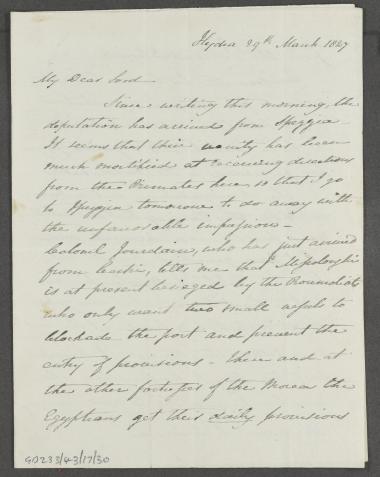 Hydra 29th March 1827
My Dear Lord
Since writing this morning, the
deputation has arrived from Speggia -
It seems that their vanity has been
much mortified at receiving directions
from the Primates here, so that I go
to Speggia tomorrow to do away with
the unfavorable impression -
Colonel Jourdain, who has just arrived
from , tells me that
is at present besieged by the Roumeliots
who only want two small
blockade the port and prevent the
entry of provisions - there and at
the other fortresses of the Morea the
Egyptians get their daily provisions
GD233/43/17/30